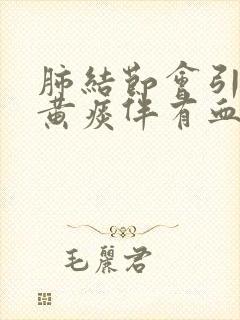 肺結節會引
黄痰伴有血
毛麗君